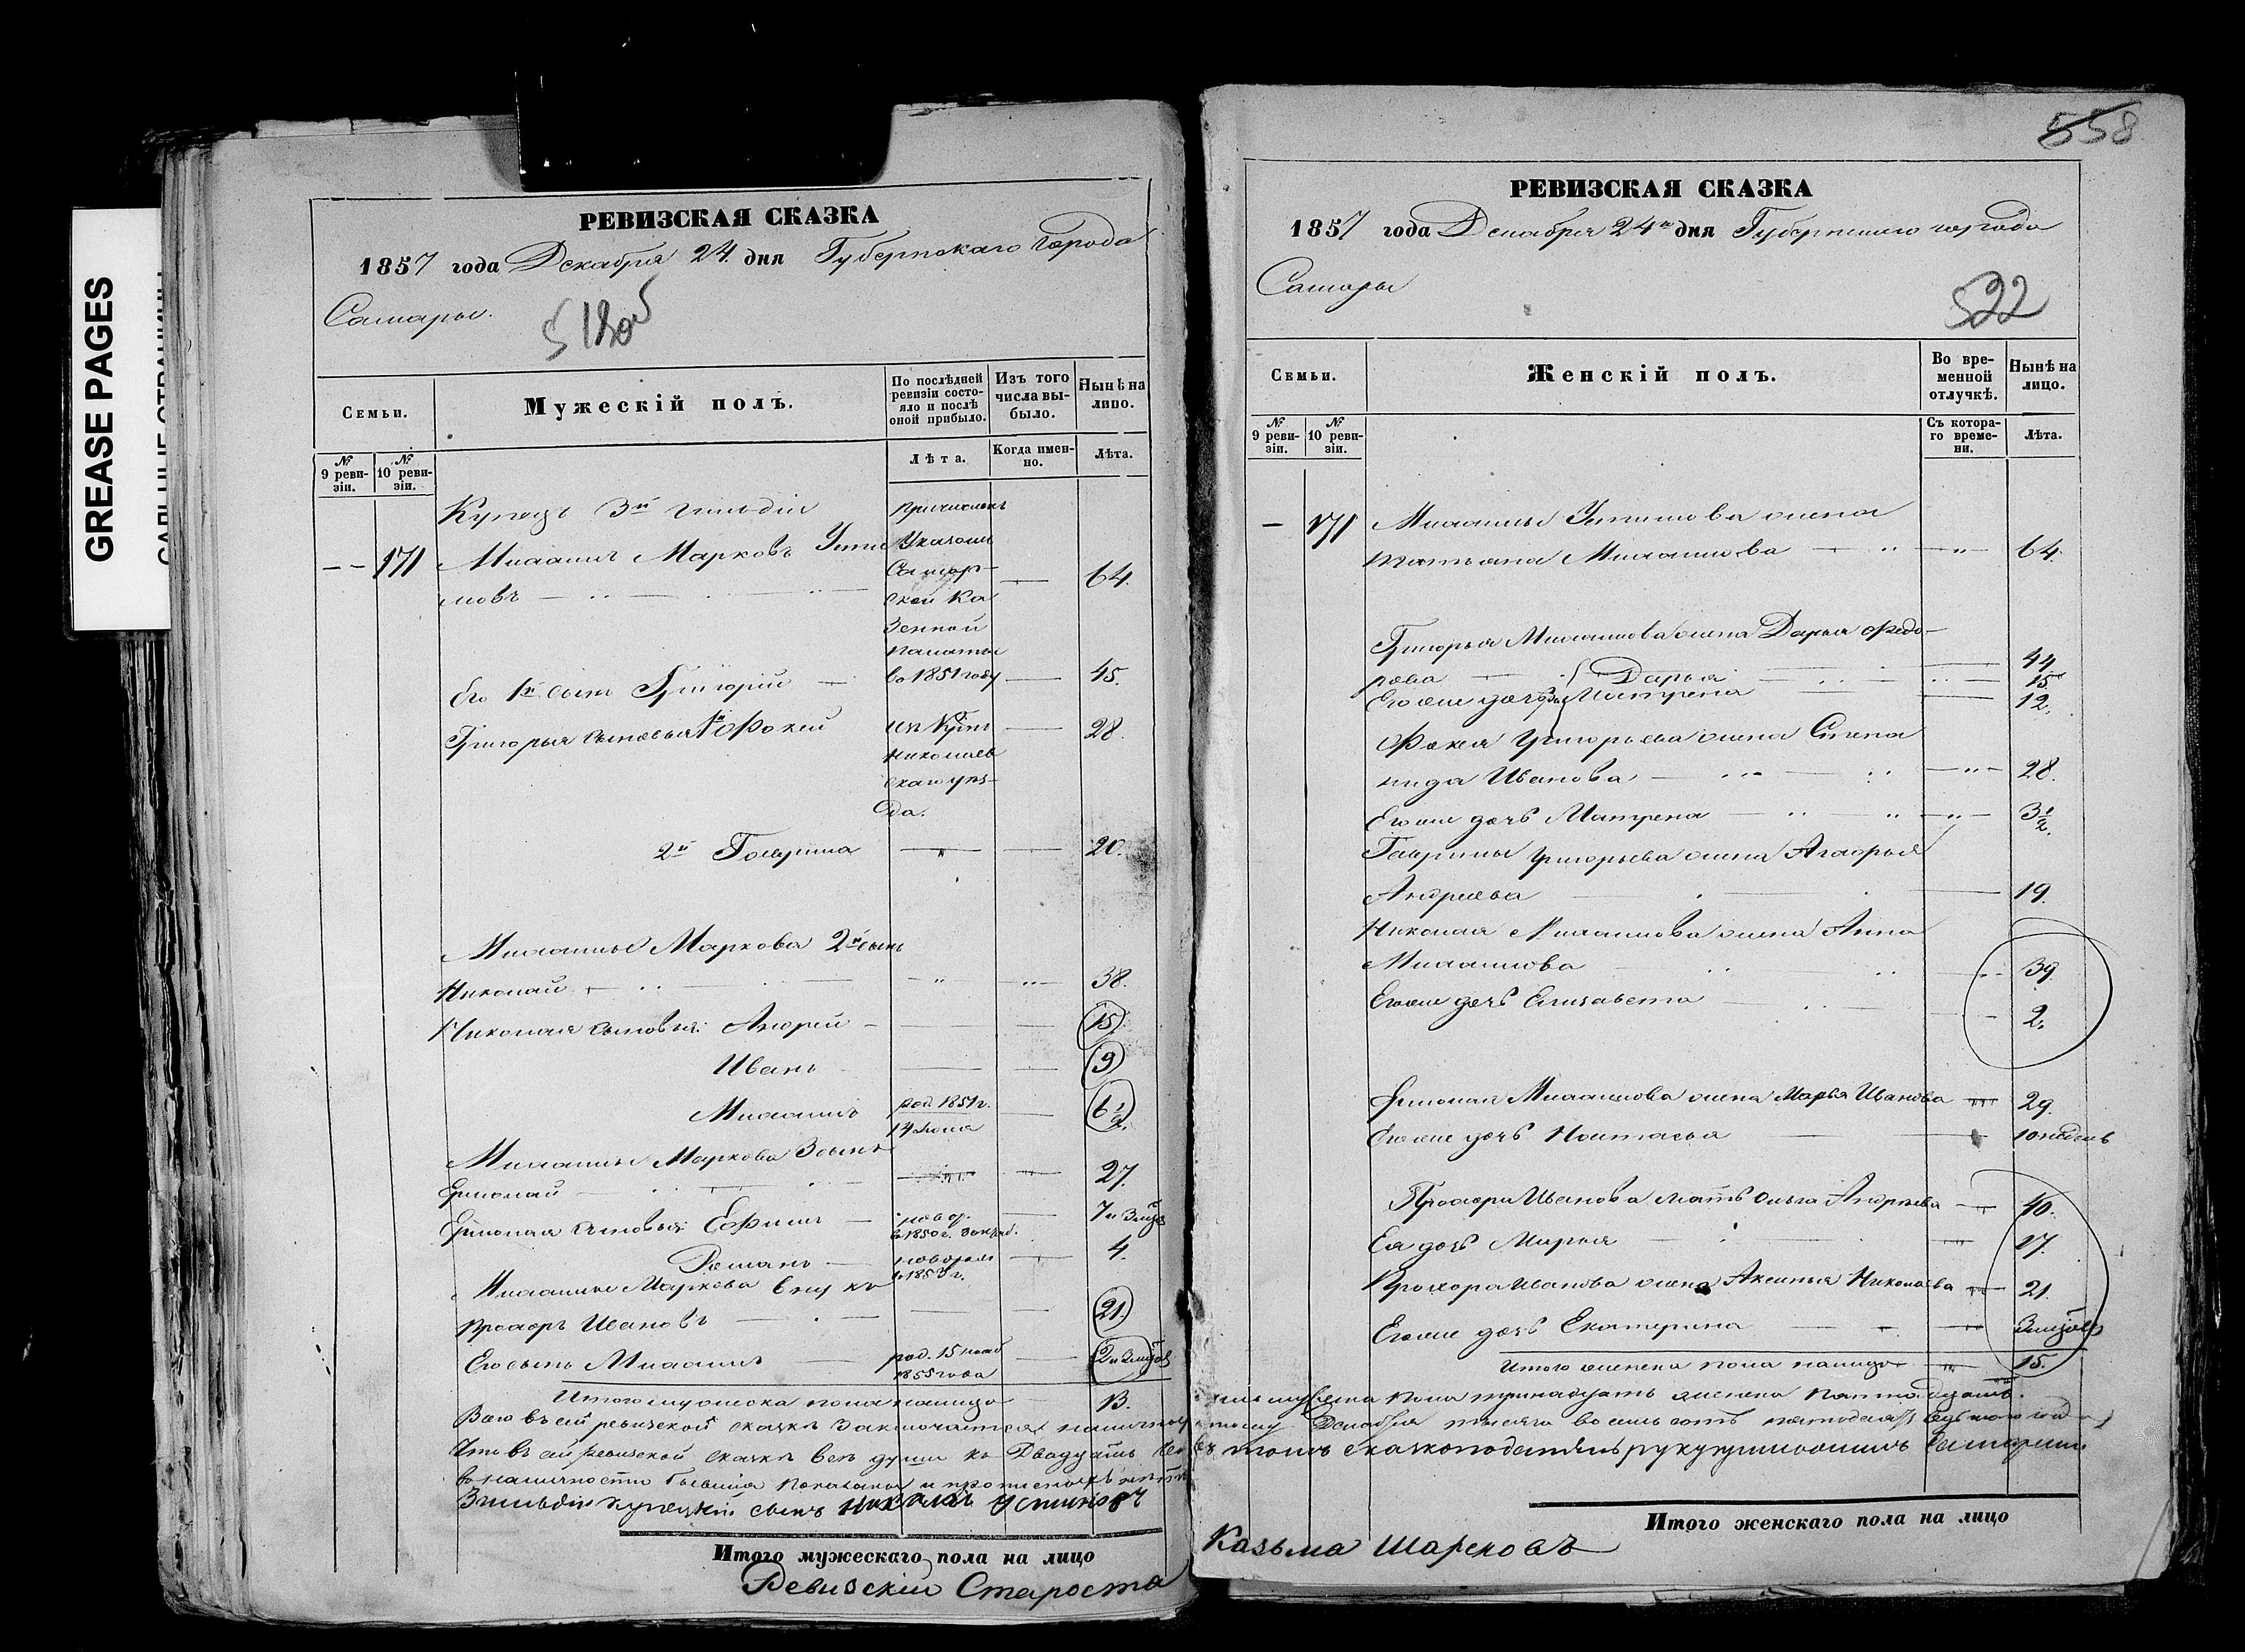 GREASE PAGES
РЕВИЗСКАЯ СКАЗКА
1857 года Декабря 24. дня Губернскаго Города
Самары.
Семьи.
Мужескій полъ.
По послѣдней ревизіи состояло и послѣ оной прибыло.
Изъ того числа выбыло.
Нынѣ на лицо.
№ 9 ревизіи.
№ 10 ревизіи.
Лѣта.
Когда именно.
Лѣта.
Купецъ 3й гильдіи
171 Михаилъ Марковъ Усти
новъ 64.
причисленъ
Указомъ
Самар-
ской Ка
зенной
палаты
въ 1851 году
Его 1й сынъ Григорій 45.
Григорья сыновья 1й Фокей 28.
Николаев
скаго уѣз-
да.
2й Гаврила 20.
Михаилы Маркова 2й сынъ
Николай 38.
Николая сыновья: Андрей 15.
Иванъ 9
Михаилъ род. 1851 г. 6 1/2.
14 Іюня
Михаилы Маркова 3 сынъ
Ермолай 27.
Ермолая сыновья: Ефимъ 7 и 3 мѣс
Романъ 4.
в 1853 г.
Михаилы Маркова внукъ
Прохоръ Ивановъ 21.
Его сынъ Михаилъ род. 15 нояб
1855 года
Итого мужеска пола налицо 13.
Всего въ сей ревизской сказкѣ заключается налично
Что въ сей ревизской сказкѣ всѣ души къ Двадцать
въ наличности бывшія показаны и прописныхъ нѣтъ
3 гильдіи купеческій сынъ Николай Устиновъ
Итого мужескаго пола на лицо
Ревизскій Староста
558
РЕВИЗСКАЯ СКАЗКА
1857 года Декабря 24го дня Губернскаго города
Самары
522
Семьи.
Женскій полъ.
Во временной отлучкѣ.
Нынѣ на лицо.
№ 9 ревизіи.
№ 10 ревизіи.
Съ котораго времени.
Лѣта.
171 Михаилы Устинова жена
Татьяна Михайлова 64.
Григорья Михайлова жена Дарья Федо-
рова 44
Дарья 15
Его же дочери Матрена 12.
Фокея Григорьева жена Степа
нида Иванова 28.
Его же дочь Матрена 3 1/2.
Гаврилы Григорьева жена Агафья
Андреева 19.
Николая Михайлова жена Анна
Михайлова 39
Его же дочь Елизавета 2.
Ермолая Михайлова жена Марья Иванова 29.
Его же дочь Настасья 10 недель
Прохора Иванова мать Ольга Андрѣева 40.
Ея дочь Марья 17.
Прохора Иванова жена Аксинья Николаева 21.
Его же дочь Екатерина
Итого женска пола налицо 15.
пола тринадцать женска пятнадцать.
Декабря тысяча восемь сотъ пятьдесятъ седьмого года
въ томъ сказкоподатель руку приложилъ
Итого женскаго пола на лицо
Казьма Шарековъ